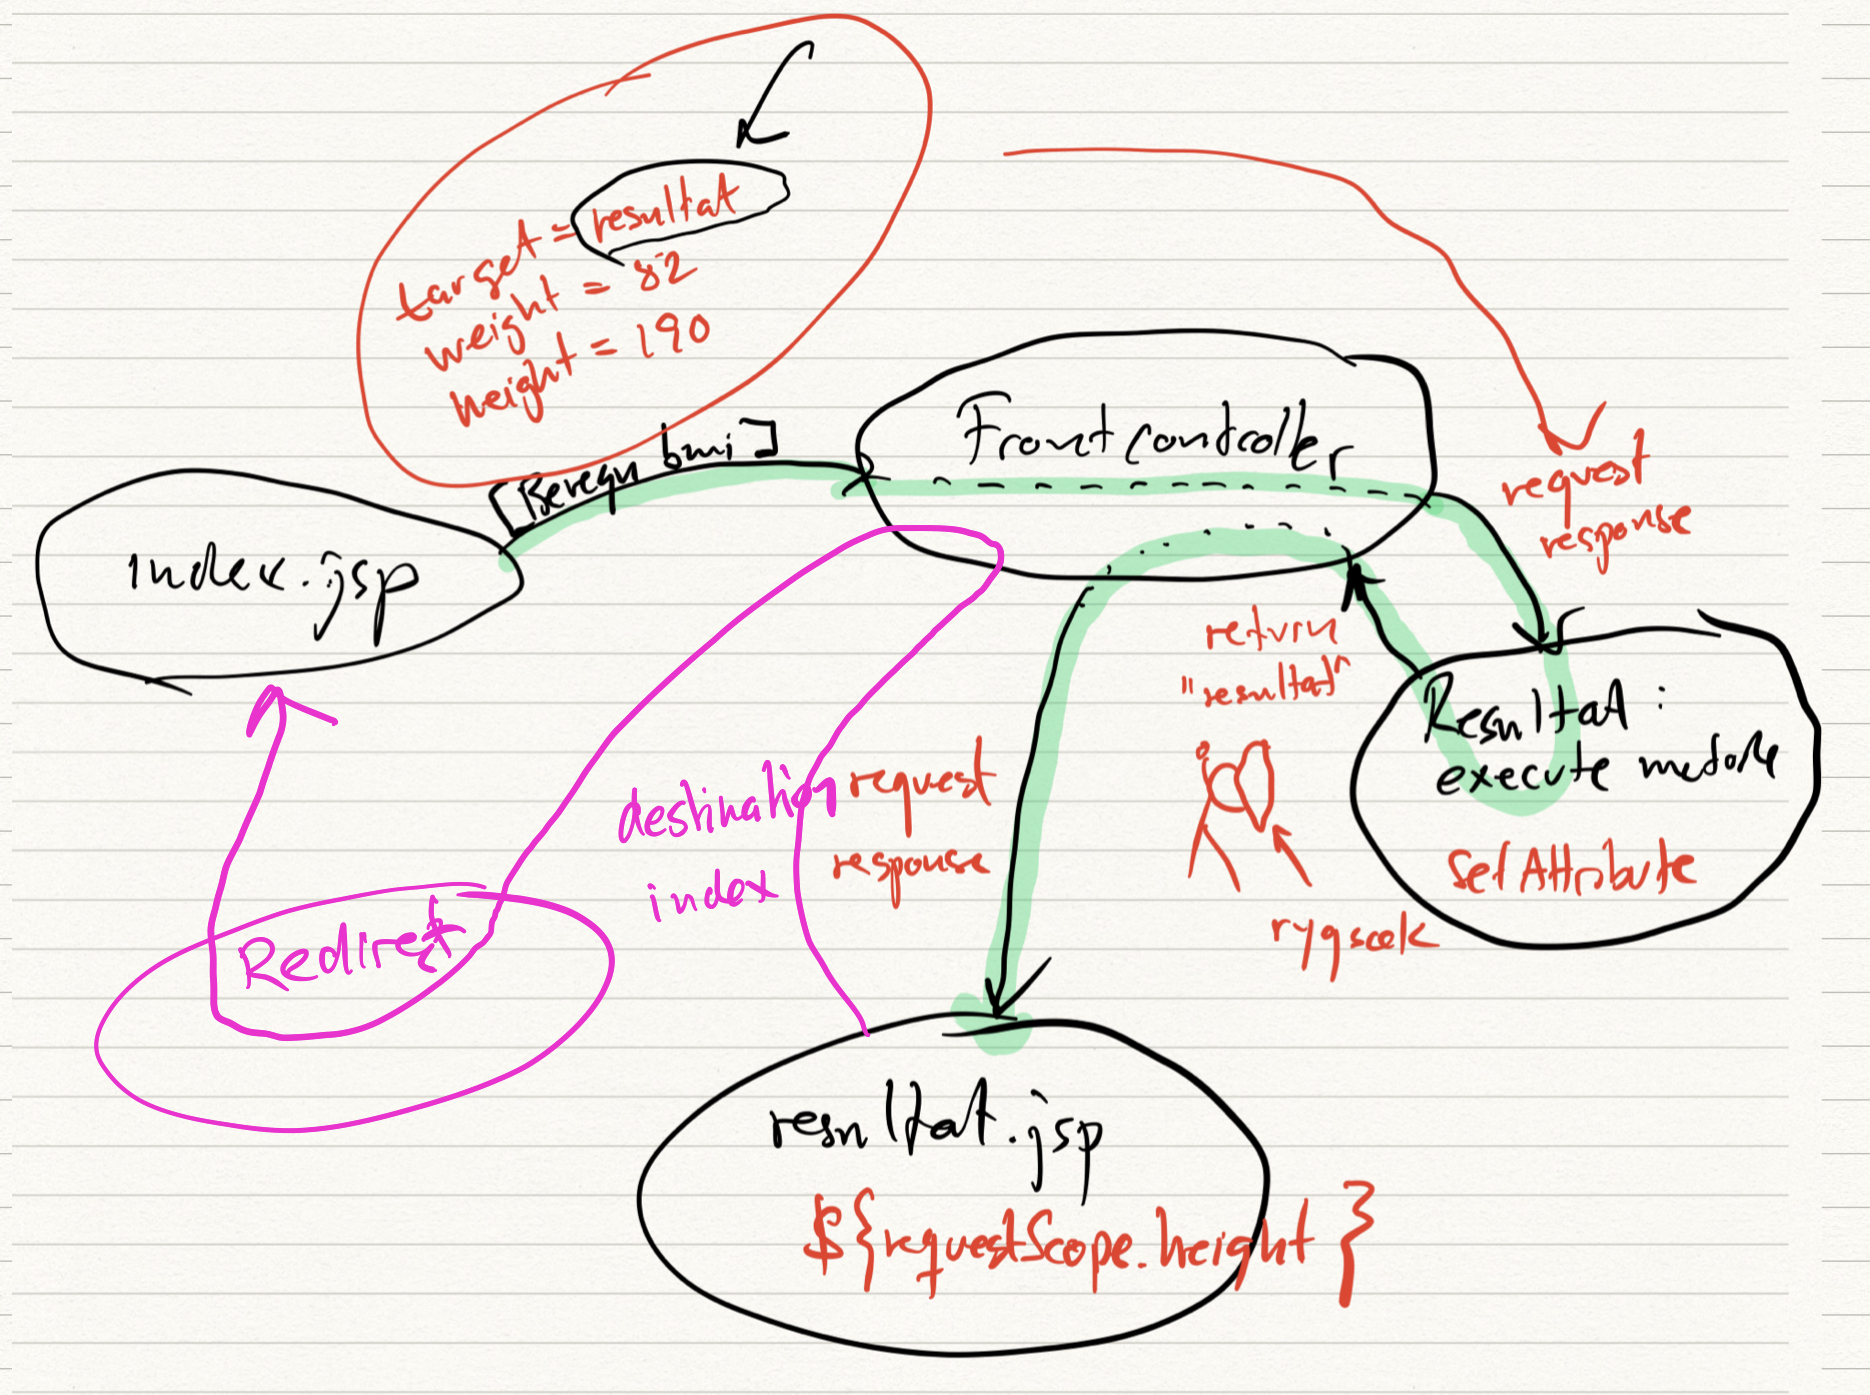 target = resultat
weight = 82
height = 190
[Beregn bmi]
Frontcontroller
request
response
index.jsp
return
"resultat"
Resultat:
execute metode
setAttribute
destination
index
request
response
rygsæk
Redirect
resultat.jsp
${requestScope.height}